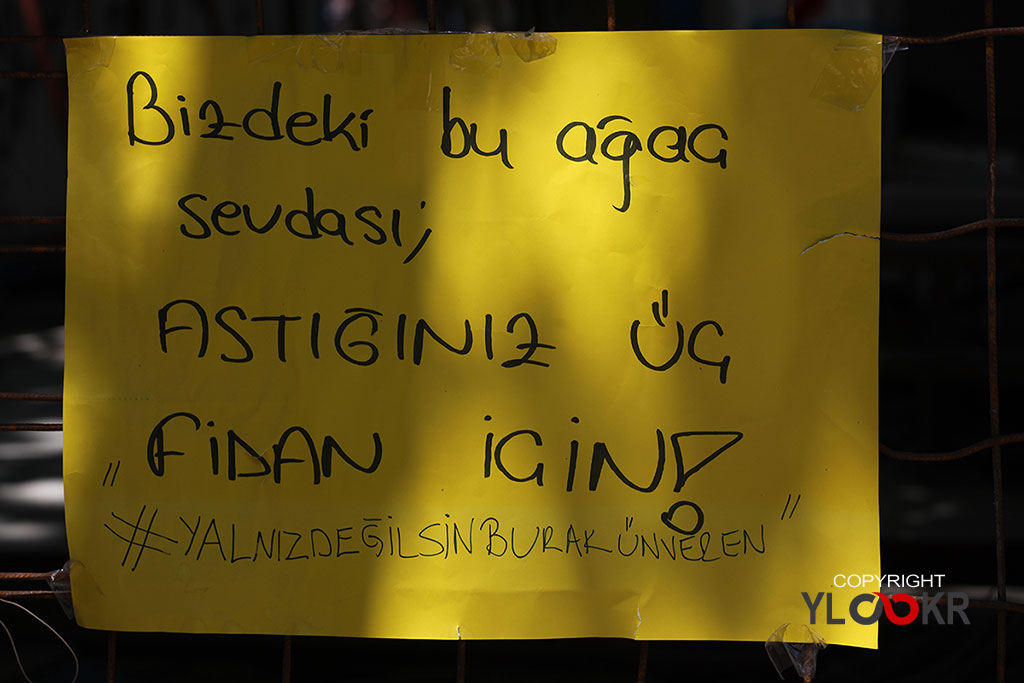 Bizdeki bu ağaç
sevdası;
ASTIĞINIZ ÜÇ
FİDAN İÇİN!
"#YALNIZDEĞİLSİNBURAKÜNVEREN"
COPYRIGHT
YLOOKR